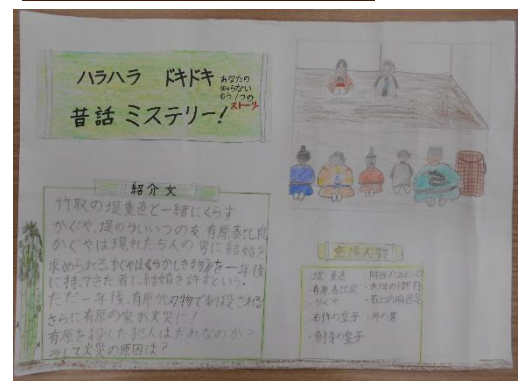 ハラハラ ドキドキ
あなたの
知らない
もう1つの
ストーリー
昔話 ミステリー!
紹介文
竹取の堤重直と一緒にくらす
かぐや。堤のゆいいつの友、有原赤比良
かぐやは現れた5人の男に結婚を
求められる。かぐやは《かしき物》を一年後
に持ってきた者に結婚を許すという。
ただ一年後、有原が刃物で刺殺される
さらに有原の家が火災に!
有原を殺した犯人はだれなのか?
そして火災の原因は?
登場人物
・堤 重直
・有原赤比良
・かぐや
・石作の皇子
・車持の皇子
・月の男